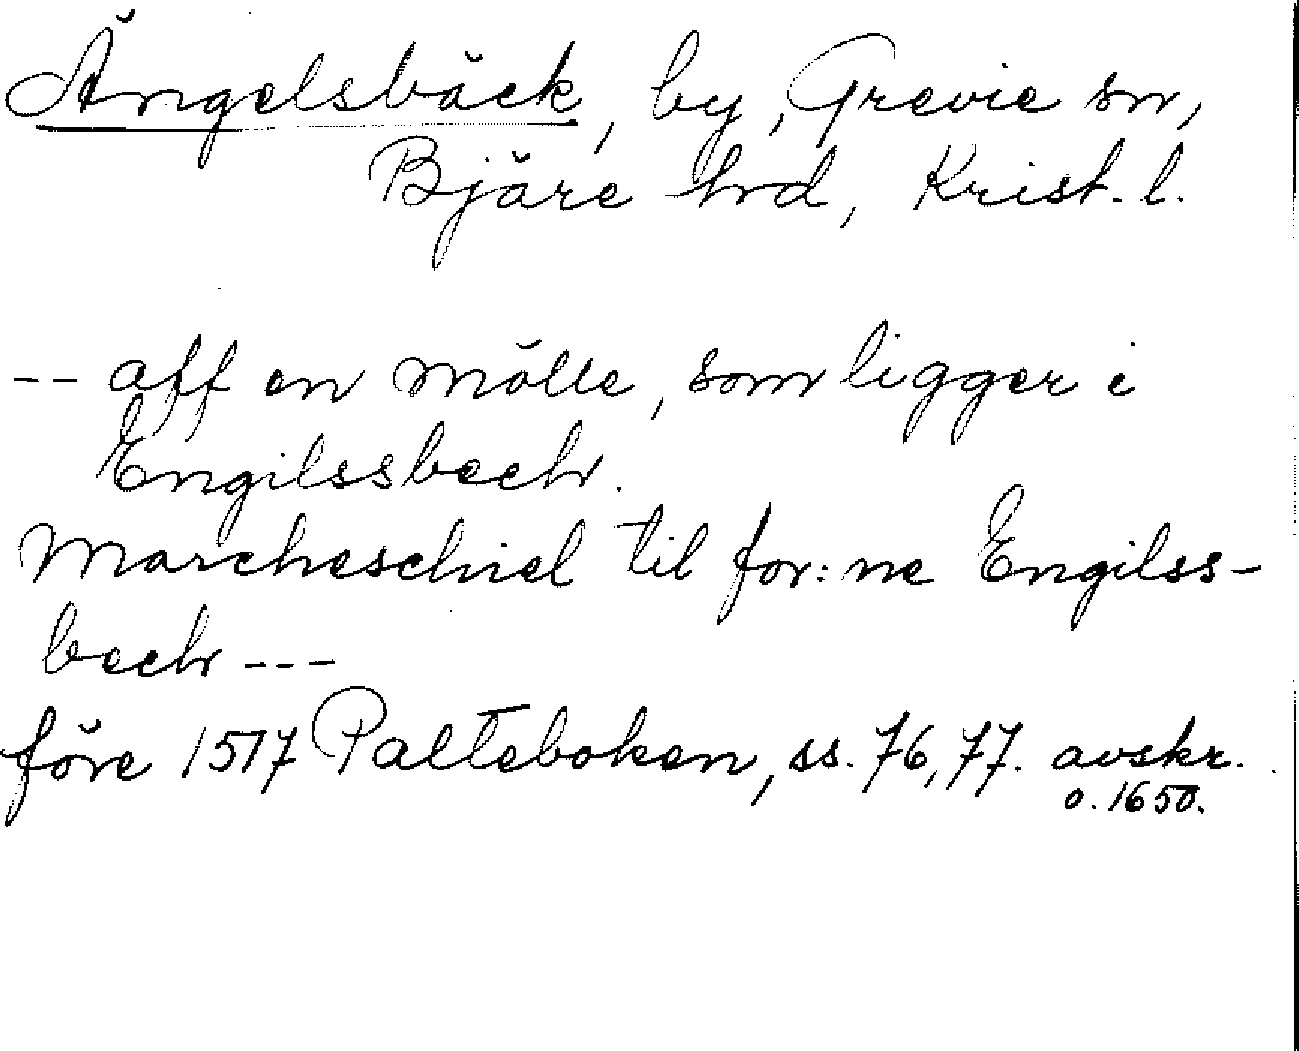 Ängelsbäck, by, Grevie sn,
Bjäre hrd, Krist. l.
-- aff en mölle, som ligger i
Engilssbech.
Marcheschiel til for:ne Engilss-
bech ---
före 1517 Palteboken, ss. 76, 77. avskr.
o. 1650.